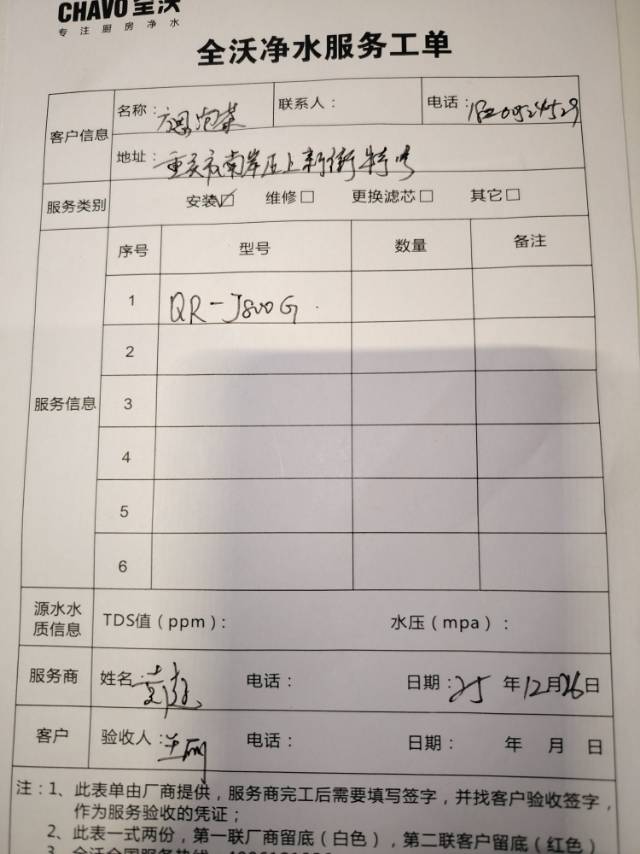 CHAVO 全沃
专注厨房净水
全沃净水服务工单
客户信息
名称：
联系人：
电话：
地址：重庆市南岸区上新街特号
服务类别
安装☑ 维修□ 更换滤芯□ 其它□
服务信息
序号 型号 数量 备注
1 QR-J800G
2
3
4
5
6
源水水质信息
TDS值（ppm）： 水压（mpa）：
服务商 姓名： 电话： 日期：25 年12月26日
客户 验收人： 电话： 日期： 年 月 日
注：1、此表单由厂商提供，服务商完工后需要填写签字，并找客户验收签字，
作为服务验收的凭证；
2、此表一式两份，第一联厂商留底（白色），第二联客户留底（红色）